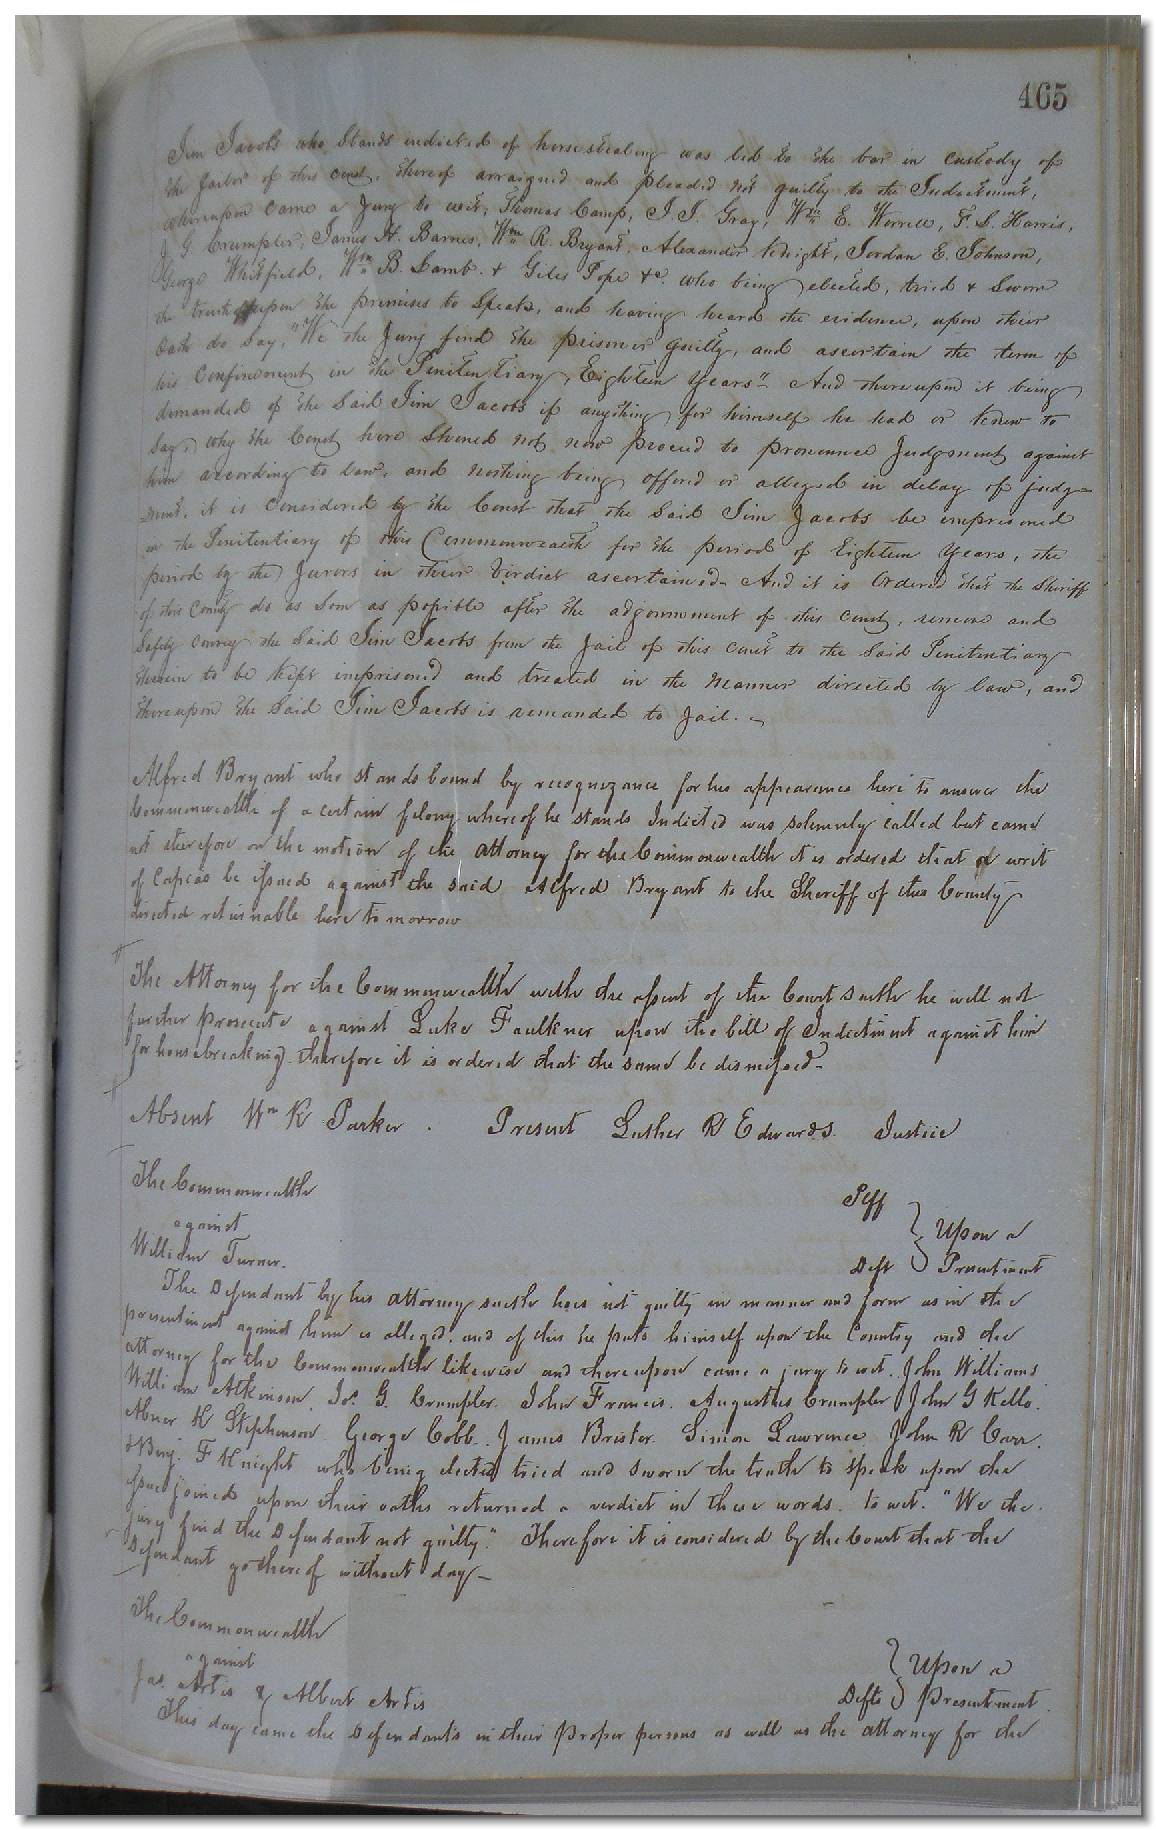 465
Jim Jacobs who stands indicted of horsestealing was led to the bar in custody of
the Jailor of this court, thereof arraigned and pleaded not guilty to the Indictment,
whereupon came a Jury to wit; Thomas Camp, J. J. Gray, Wm E. Worrell, F. S. Harris,
J. G. Crumpler, James H. Barnes, Wm R. Bryant, Alexander Knight, Jordan E. Johnson,
George Whitfield, Wm B. Lamb. & Giles Pope &c. who being elected, tried & Sworn
the truth upon the premises to Speak, and having heard the evidence, upon their
Oath do Say, "We the Jury find the prisoner guilty, and ascertain the term of
his Confinement in the Penitentiary, Eighteen Years" And thereupon it being
demanded of the Said Jim Jacobs if anything for himself he had or knew to
Say, why the Court here Should not now proceed to pronounce Judgment against
him according to law, and nothing being offered or alleged in delay of judg=
=ment, it is Considered by the Court that the Said Jim Jacobs be imprisoned
in the Penitentiary of this Commonwealth for the period of Eighteen Years, the
period by the Jurors in their Verdict ascertained- And it is Ordered that the Sheriff
of this County do as Soon as possible after the adjournment of this court, remove and
Safely convey the Said Jim Jacobs from the Jail of this court to the Said Penitentiary
therein to be kept imprisoned and treated in the Manner directed by law, and
thereupon the Said Jim Jacobs is remanded to Jail. -
Alfred Bryant who stands bound by recognizance for his appearance here to answer the
Commonwealth of a certain felony whereof he stands Indicted was solemnly called but came
not therefore on the motion of the attorney for the Commonwealth it is ordered that a writ
of Capias be issued against the said Alfred Bryant to the Sheriff of this County
directed returnable here to morrow
The Attorney for the Commonwealth with the assent of the Court saith he will not
further prosecute against Luke Faulkner upon the bill of Indictment against him
for housebreaking therefore it is ordered that the same be dismissed-
Absent Wm K Parker . Present Luther R Edwards Justice
The Commonwealth Plff
against Upon a
William Turner. Deft Presentment
The Defendant by his attorney saith he is not guilty in manner and form as in the
presentment against him is alleged. and of this he puts himself upon the Country and the
attorney for the Commonwealth likewise and thereupon came a jary to wit. John Williams
William Atkinson. Jos. G. Crumpler. John Francis. Augustus Crumpler John G Kello.
Abner H Stephenson George Cobb. James Brister. Simon Lawrence John R Carr.
& Benj. F Knight who being elected tried and sworn the truth to speak upon the
issue joined upon their oaths returned a verdict in these words. to wit. "We the
jury find the Defendant not guilty." Therefore it is considered by the Court that the
Defendant go thereof without day-
The Commonwealth
against Upon a
Jas. Artis & Albert Artis Defts Presentment
This day came the Defendants in their proper persons as well as the attorney for the